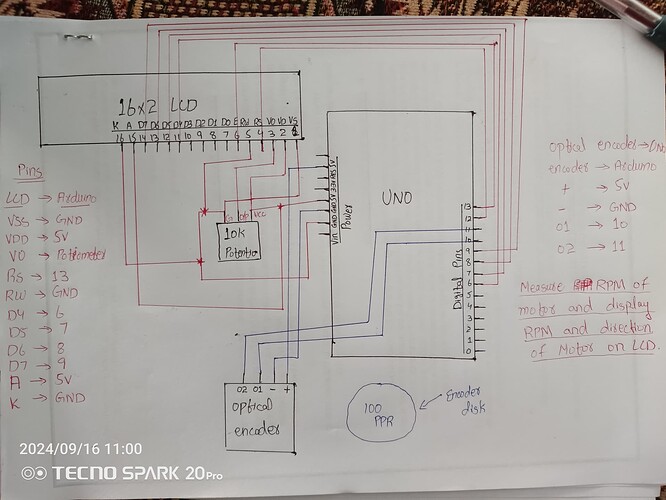 16x2 LCD
K A D7 D6 D5 D4 D3 D2 D1 D0 E RW RS VO VD VS
16 15 14 13 12 11 10 9 8 7 6 5 4 3 2 1
UNO
Vin GND GND 5V 3.3V
Power
13
12
11
10
9
8
7
6
5
4
3
2
1
0
Digital Pins
VCC
10k
Potentio
02 01 - +
optical
encoder
100
PPR
Encoder
disk
Pins
LCD → Arduino
VSS → GND
VDD → 5V
VO → Potiometer
RS → 13
RW → GND
D4 → 6
D5 → 7
D6 → 8
D7 → 9
A → 5V
K → GND
optical encoder → UNO
encoder → Arduino
+ → 5V
- → GND
01 → 10
02 → 11
Measure RPM of
motor and display
RPM and direction
of Motor on LCD.
2024/09/16 11:00
TECNO SPARK 20Pro